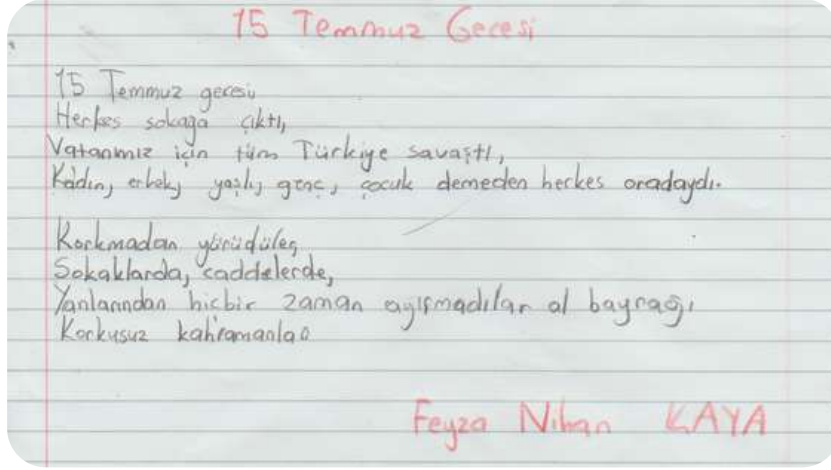 15 Temmuz Gecesi
15 Temmuz gecesi,
Herkes sokağa çıktı,
Vatanımız için tüm Türkiye savaştı,
Kadın, erkek, yaşlı, genç, çocuk demeden herkes oradaydı.
Korkmadan yürüdüler,
Sokaklarda, caddelerde,
Yanlarından hiçbir zaman ayırmadılar al bayrağı
Korkusuz kahramanlar
Feyza Nihan KAYA